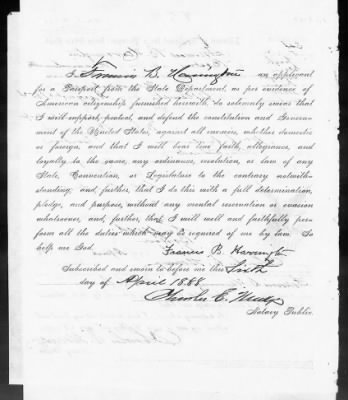 I, Francis B. Harrington an applicant
for a Passport from the State Department, as per evidence of
American citizenship furnished herewith, do solemnly swear that
I will support, protect, and defend the constitution and Govern-
ment of the United States, against all enemies, whether domestic
or foreign, and that I will bear true faith, allegiance, and
loyalty to the same, any ordinance, resolution, or law of any
State, Convention, or Legislature to the contrary notwith-
standing; and, further, that I do this with a full determination,
pledge, and purpose, without any mental reservation or evasion
whatsoever, and, further, that I will well and faithfully per-
form all the duties which may be required of me by law. So
help me God.
Francis B. Harrington
Subscribed and sworn to before me this Sixth
day of April 1888
Charles E.
Notary Public.